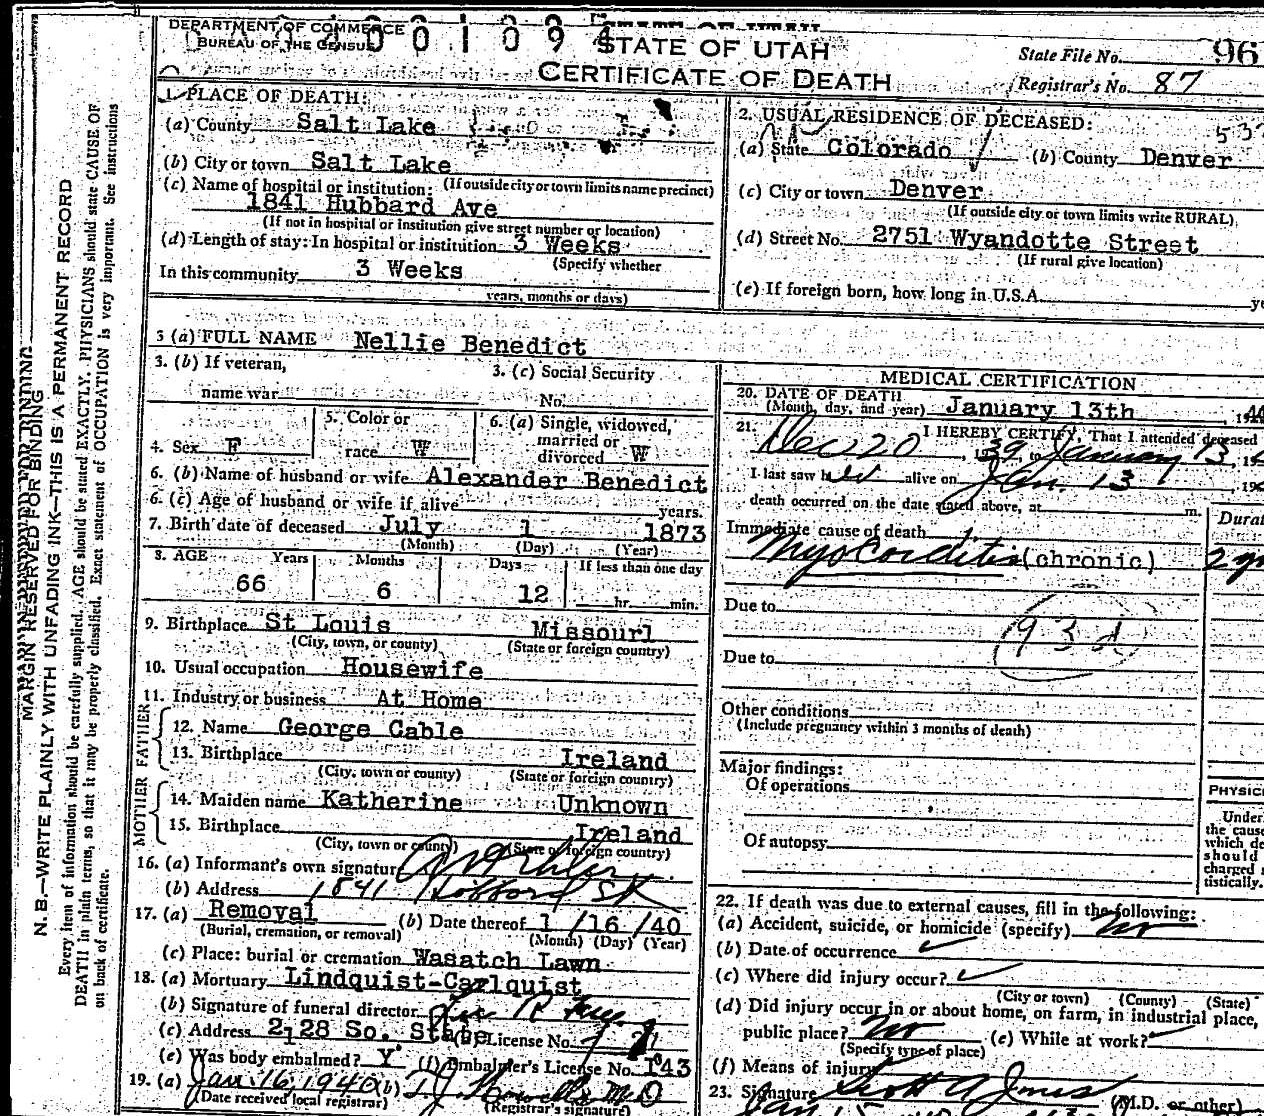 DEPARTMENT OF COMMERCE
BUREAU OF THE CENSUS
STATE OF UTAH
CERTIFICATE OF DEATH
State File No. 96
Registrar's No. 87
1. PLACE OF DEATH:
(a) County Salt Lake
(b) City or town Salt Lake
(If outside city or town limits name precinct)
(c) Name of hospital or institution:
1841 Hubbard Ave
(If not in hospital or institution give street number or location)
(d) Length of stay: In hospital or institution 3 Weeks
(Specify whether
In this community 3 Weeks
years, months or days)
2. USUAL RESIDENCE OF DECEASED:
(a) State Colorado (b) County Denver
(c) City or town Denver
(If outside city or town limits write RURAL)
(d) Street No. 2751 Wyandotte Street
(If rural give location)
(e) If foreign born, how long in U.S.A.
3 (a) FULL NAME Nellie Benedict
3. (b) If veteran,
name war
3. (c) Social Security
No.
4. Sex F
5. Color or
race W
6. (a) Single, widowed,
married or
divorced W
6. (b) Name of husband or wife Alexander Benedict
6. (c) Age of husband or wife if alive years.
7. Birth date of deceased July 1 1873
(Month) (Day) (Year)
8. AGE Years Months Days If less than one day
66 6 12 hr. min.
9. Birthplace St Louis Missouri
(City, town, or county) (State or foreign country)
10. Usual occupation Housewife
11. Industry or business At Home
FATHER
12. Name George Cable
13. Birthplace Ireland
(City, town or county) (State or foreign country)
MOTHER
14. Maiden name Katherine Unknown
15. Birthplace Ireland
(City, town or county) (State or foreign country)
16. (a) Informant's own signature
(b) Address 1841
17. (a) Removal (b) Date thereof 1 /16 /40
(Burial, cremation, or removal) (Month) (Day) (Year)
(c) Place: burial or cremation Wasatch Lawn
18. (a) Mortuary Lindquist-Carlquist
(b) Signature of funeral director
(c) Address 2128 So. State License No.
(e) Was body embalmed? Y (f) Embalmer's License No. 143
19. (a) Jan. 16, 1940 (b)
(Date received local registrar) (Registrar's signature)
MEDICAL CERTIFICATION
20. DATE OF DEATH
(Month, day, and year) January 13th
21. I HEREBY CERTIFY, That I attended deceased
Dec 20, 1939, to January 13
I last saw her alive on Jan. 13
death occurred on the date stated above, at m.
Immediate cause of death
Myocarditis (chronic) 2
Due to
93d
Due to
Other conditions
(Include pregnancy within 3 months of death)
Major findings:
Of operations
Of autopsy
22. If death was due to external causes, fill in the following:
(a) Accident, suicide, or homicide (specify) no
(b) Date of occurrence
(c) Where did injury occur?
(City or town) (County) (State)
(d) Did injury occur in or about home, on farm, in industrial place,
public place? no (e) While at work?
(Specify type of place)
(f) Means of injury
23. Signature Scott A Jones (M.D. or other)
MARGIN RESERVED FOR BINDING
N. B.—WRITE PLAINLY WITH UNFADING INK—THIS IS A PERMANENT RECORD
Every item of information should be carefully supplied. AGE should be stated EXACTLY. PHYSICIANS should state CAUSE OF
DEATH in plain terms, so that it may be properly classified. Exact statement of OCCUPATION is very important. See instructions
on back of certificate.